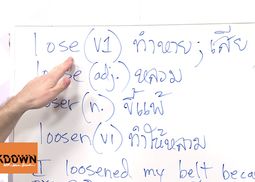 lose (v1) ทำหาย ; เสีย
loose (adj.) หลวม
loser (n.) ขี้แพ้
loosen (v1) ทำให้หลวม
KDOWN
I loosened my belt becau